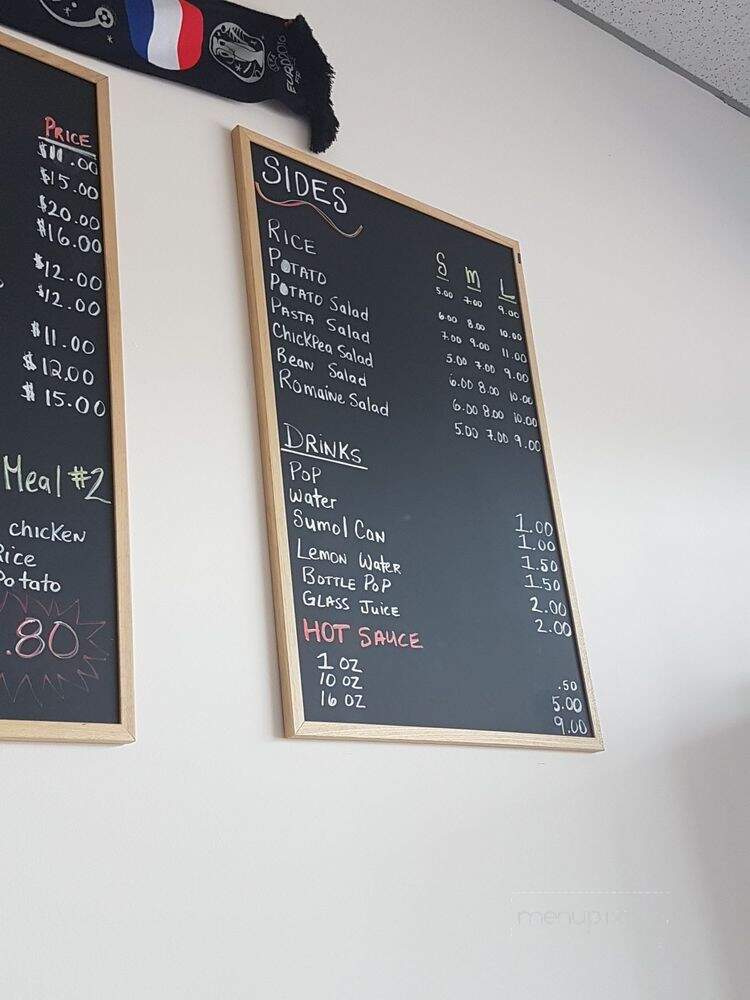 UEFA EURO2016
PRICE
$11.00
$15.00
$20.00
$16.00
$12.00
$12.00
$11.00
$12.00
$15.00
Meal #2
chicken
Rice
Potato
.80
SIDES
S M L
RICE 5.00 7.00 9.00
POTATO 6.00 8.00 10.00
POTATO Salad 7.00 9.00 11.00
PASTA Salad 5.00 7.00 9.00
ChickPea Salad 6.00 8.00 10.00
Bean Salad 6.00 8.00 10.00
Romaine Salad 5.00 7.00 9.00
DRINKS
POP 1.00
water 1.00
Sumol Can 1.50
LEMON WATER 1.50
BOTTLE POP 2.00
GLASS JUICE 2.00
HOT SAUCE
1 OZ .50
10 OZ 5.00
16 OZ 9.00